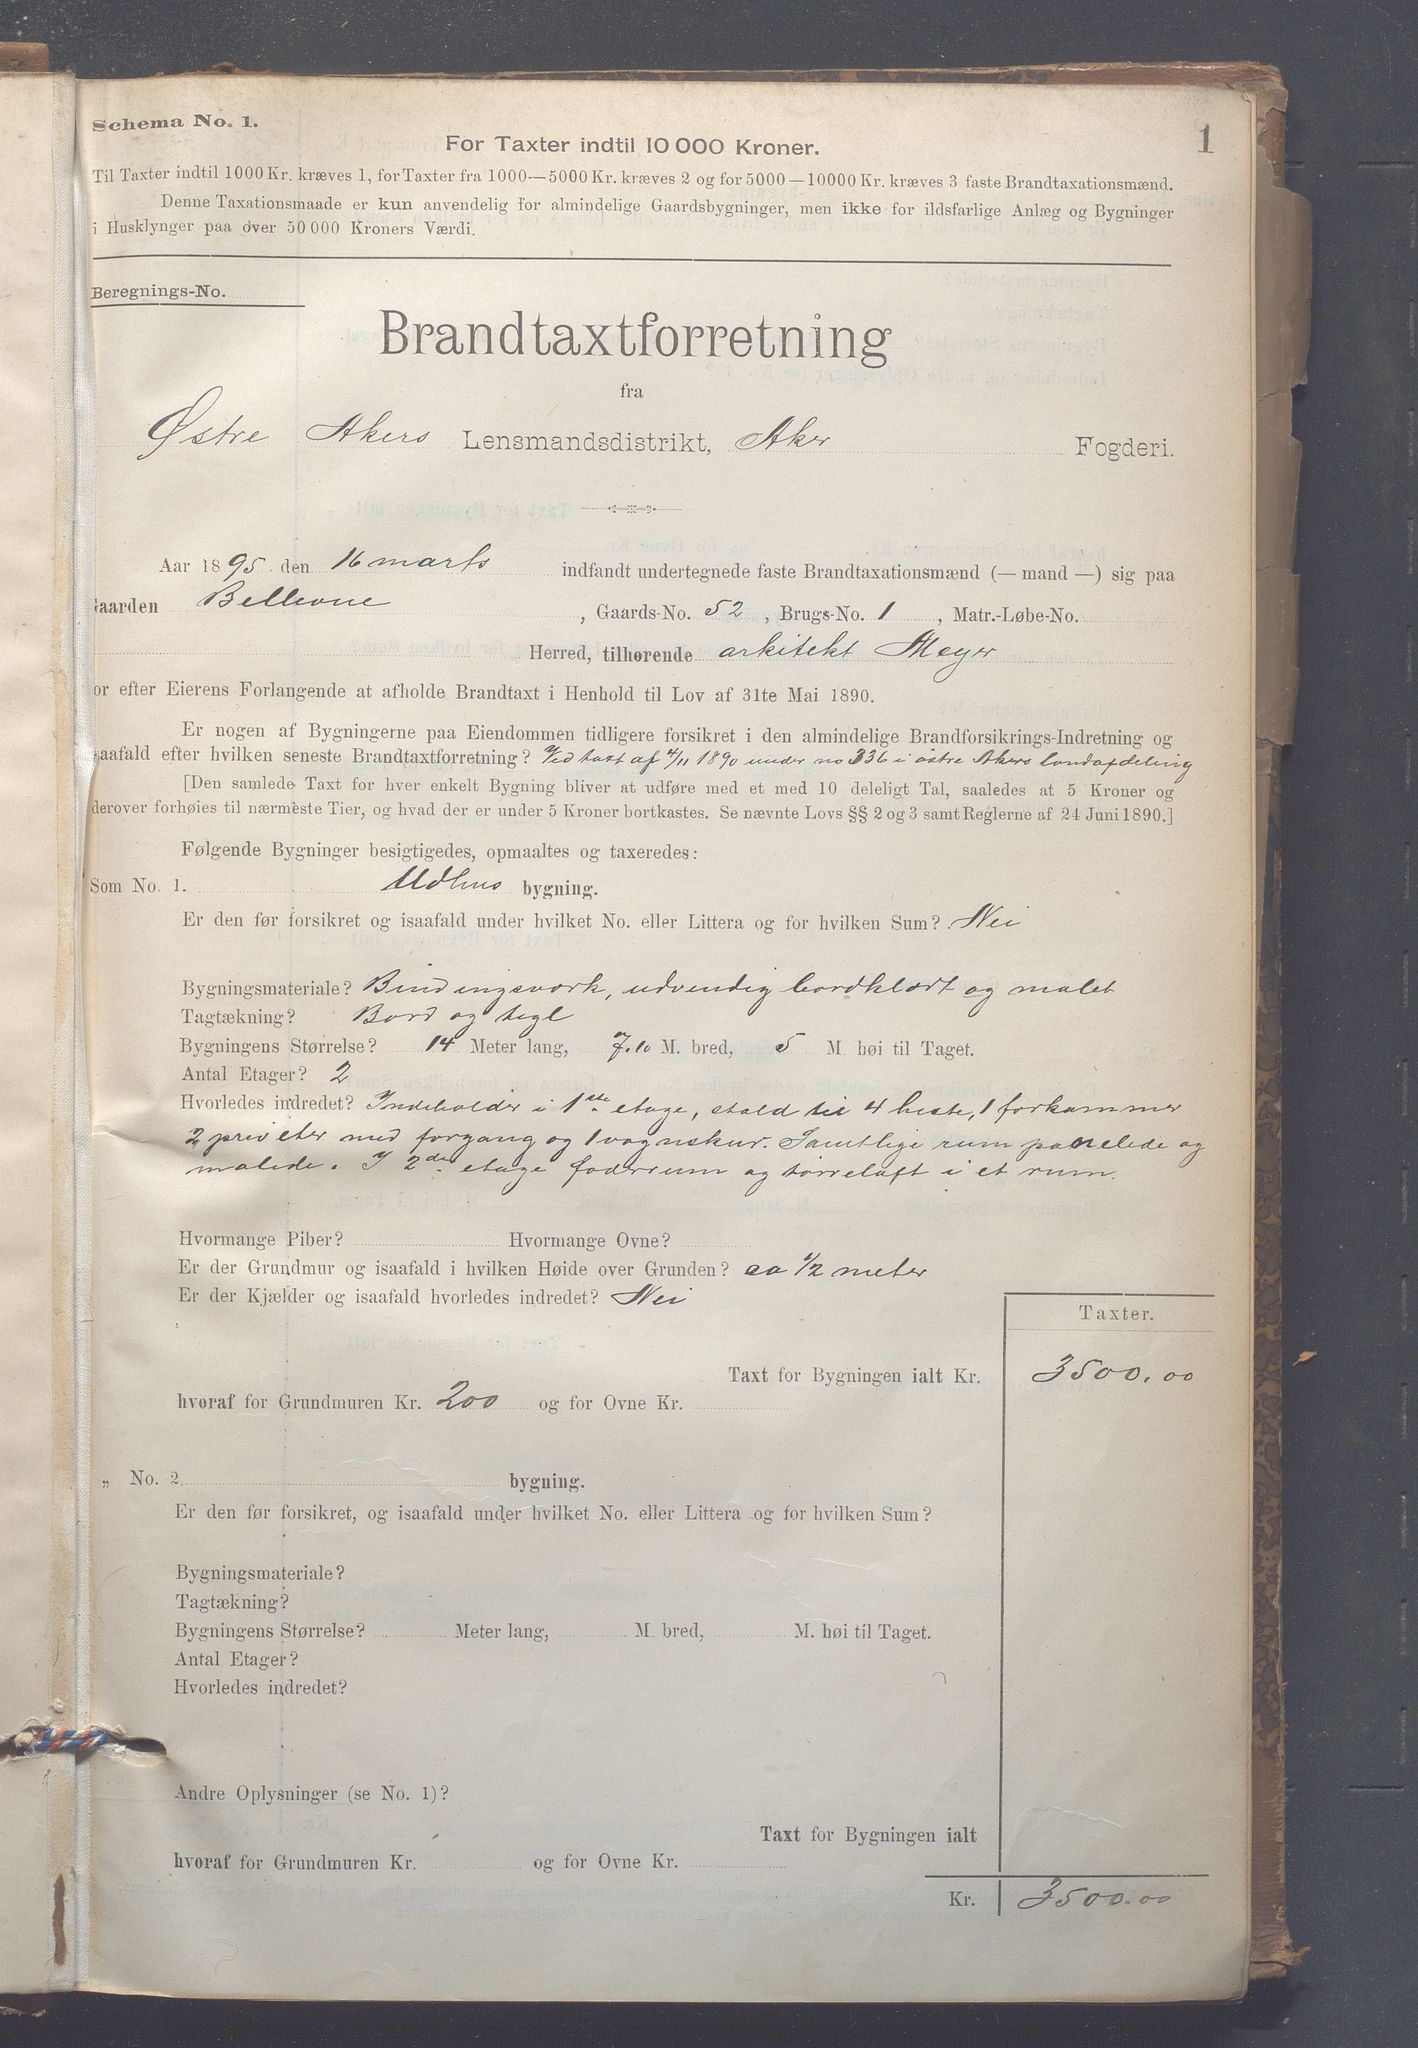 Schema No. 1.
1
For Taxter indtil 10 000 Kroner.
Til Taxter indtil 1000 Kr. kræves 1, for Taxter fra 1000—5000 Kr. kræves 2 og for 5000—10000 Kr. kræves 3 faste Brandtaxationsmænd.
Denne Taxationsmaade er kun anvendelig for almindelige Gaardsbygninger, men ikke for ildsfarlige Anlæg og Bygninger
i Husklynger paa over 50 000 Kroners Værdi.
Beregnings-No.
Brandtaxtforretning
fra
Østre Akers Lensmandsdistrikt, Aker Fogderi.
Aar 1895 den 16 marts indfandt undertegnede faste Brandtaxationsmænd (— mand —) sig paa
Gaarden Bellevue, Gaards-No. 52, Brugs-No. 1, Matr.-Løbe-No.
Herred, tilhørende arkitekt Meyer
or efter Eierens Forlangende at afholde Brandtaxt i Henhold til Lov af 31te Mai 1890.
Er nogen af Bygningerne paa Eiendommen tidligere forsikret i den almindelige Brandforsikrings-Indretning og
saafald efter hvilken seneste Brandtaxtforretning? Ved taxt af 4/11 1890 under no 336 i østre Akers landafdeling
[Den samlede Taxt for hver enkelt Bygning bliver at udføre med et med 10 deleligt Tal, saaledes at 5 Kroner og
derover forhøies til nærmeste Tier, og hvad der er under 5 Kroner bortkastes. Se nævnte Lovs §§ 2 og 3 samt Reglerne af 24 Juni 1890.]
Følgende Bygninger besigtigedes, opmaaltes og taxeredes:
Som No. 1. Udhus bygning.
Er den før forsikret og isaafald under hvilket No. eller Littera og for hvilken Sum? Nei
Bygningsmateriale? Bindingsværk, udvendig bordklædt og malet
Tagtækning? Bord og tegl
Bygningens Størrelse? 14 Meter lang, 7.10 M. bred, 5 M. høi til Taget.
Antal Etager? 2
Hvorledes indredet? Indeholder i 1ste etage, stald til 4 heste, 1 forkammer
2 priveter med forgang og 1 vognskur. Samtlige rum panelede og
malede. I 2den etage foderrum og tørreloft i et rum.
Hvormange Piber? Hvormange Ovne?
Er der Grundmur og isaafald i hvilken Høide over Grunden? ca 1/2 meter
Er der Kjælder og isaafald hvorledes indredet? Nei
Taxter.
Taxt for Bygningen ialt Kr. 3500.00
hvoraf for Grundmuren Kr. 200 og for Ovne Kr.
„ No. 2 bygning.
Er den før forsikret, og isaafald under hvilket No. eller Littera og for hvilken Sum?
Bygningsmateriale?
Tagtækning?
Bygningens Størrelse? Meter lang, M. bred, M. høi til Taget.
Antal Etager?
Hvorledes indredet?
Andre Oplysninger (se No. 1)?
Taxt for Bygningen ialt
hvoraf for Grundmuren Kr. og for Ovne Kr.
Kr. 3500.00